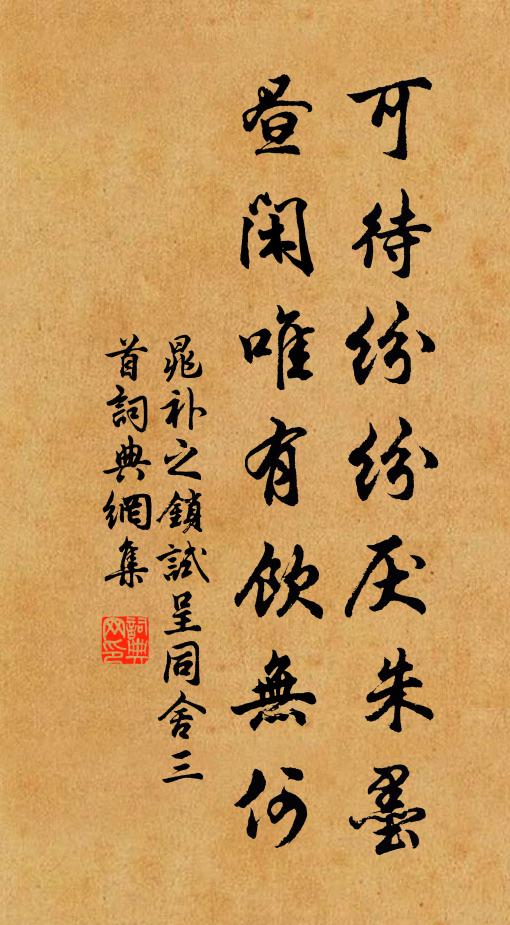 可待纷纷厌朱墨
昼闲唯有饮無何
晁补之鎖試呈同舍三
首詞典網集
詞典
网印